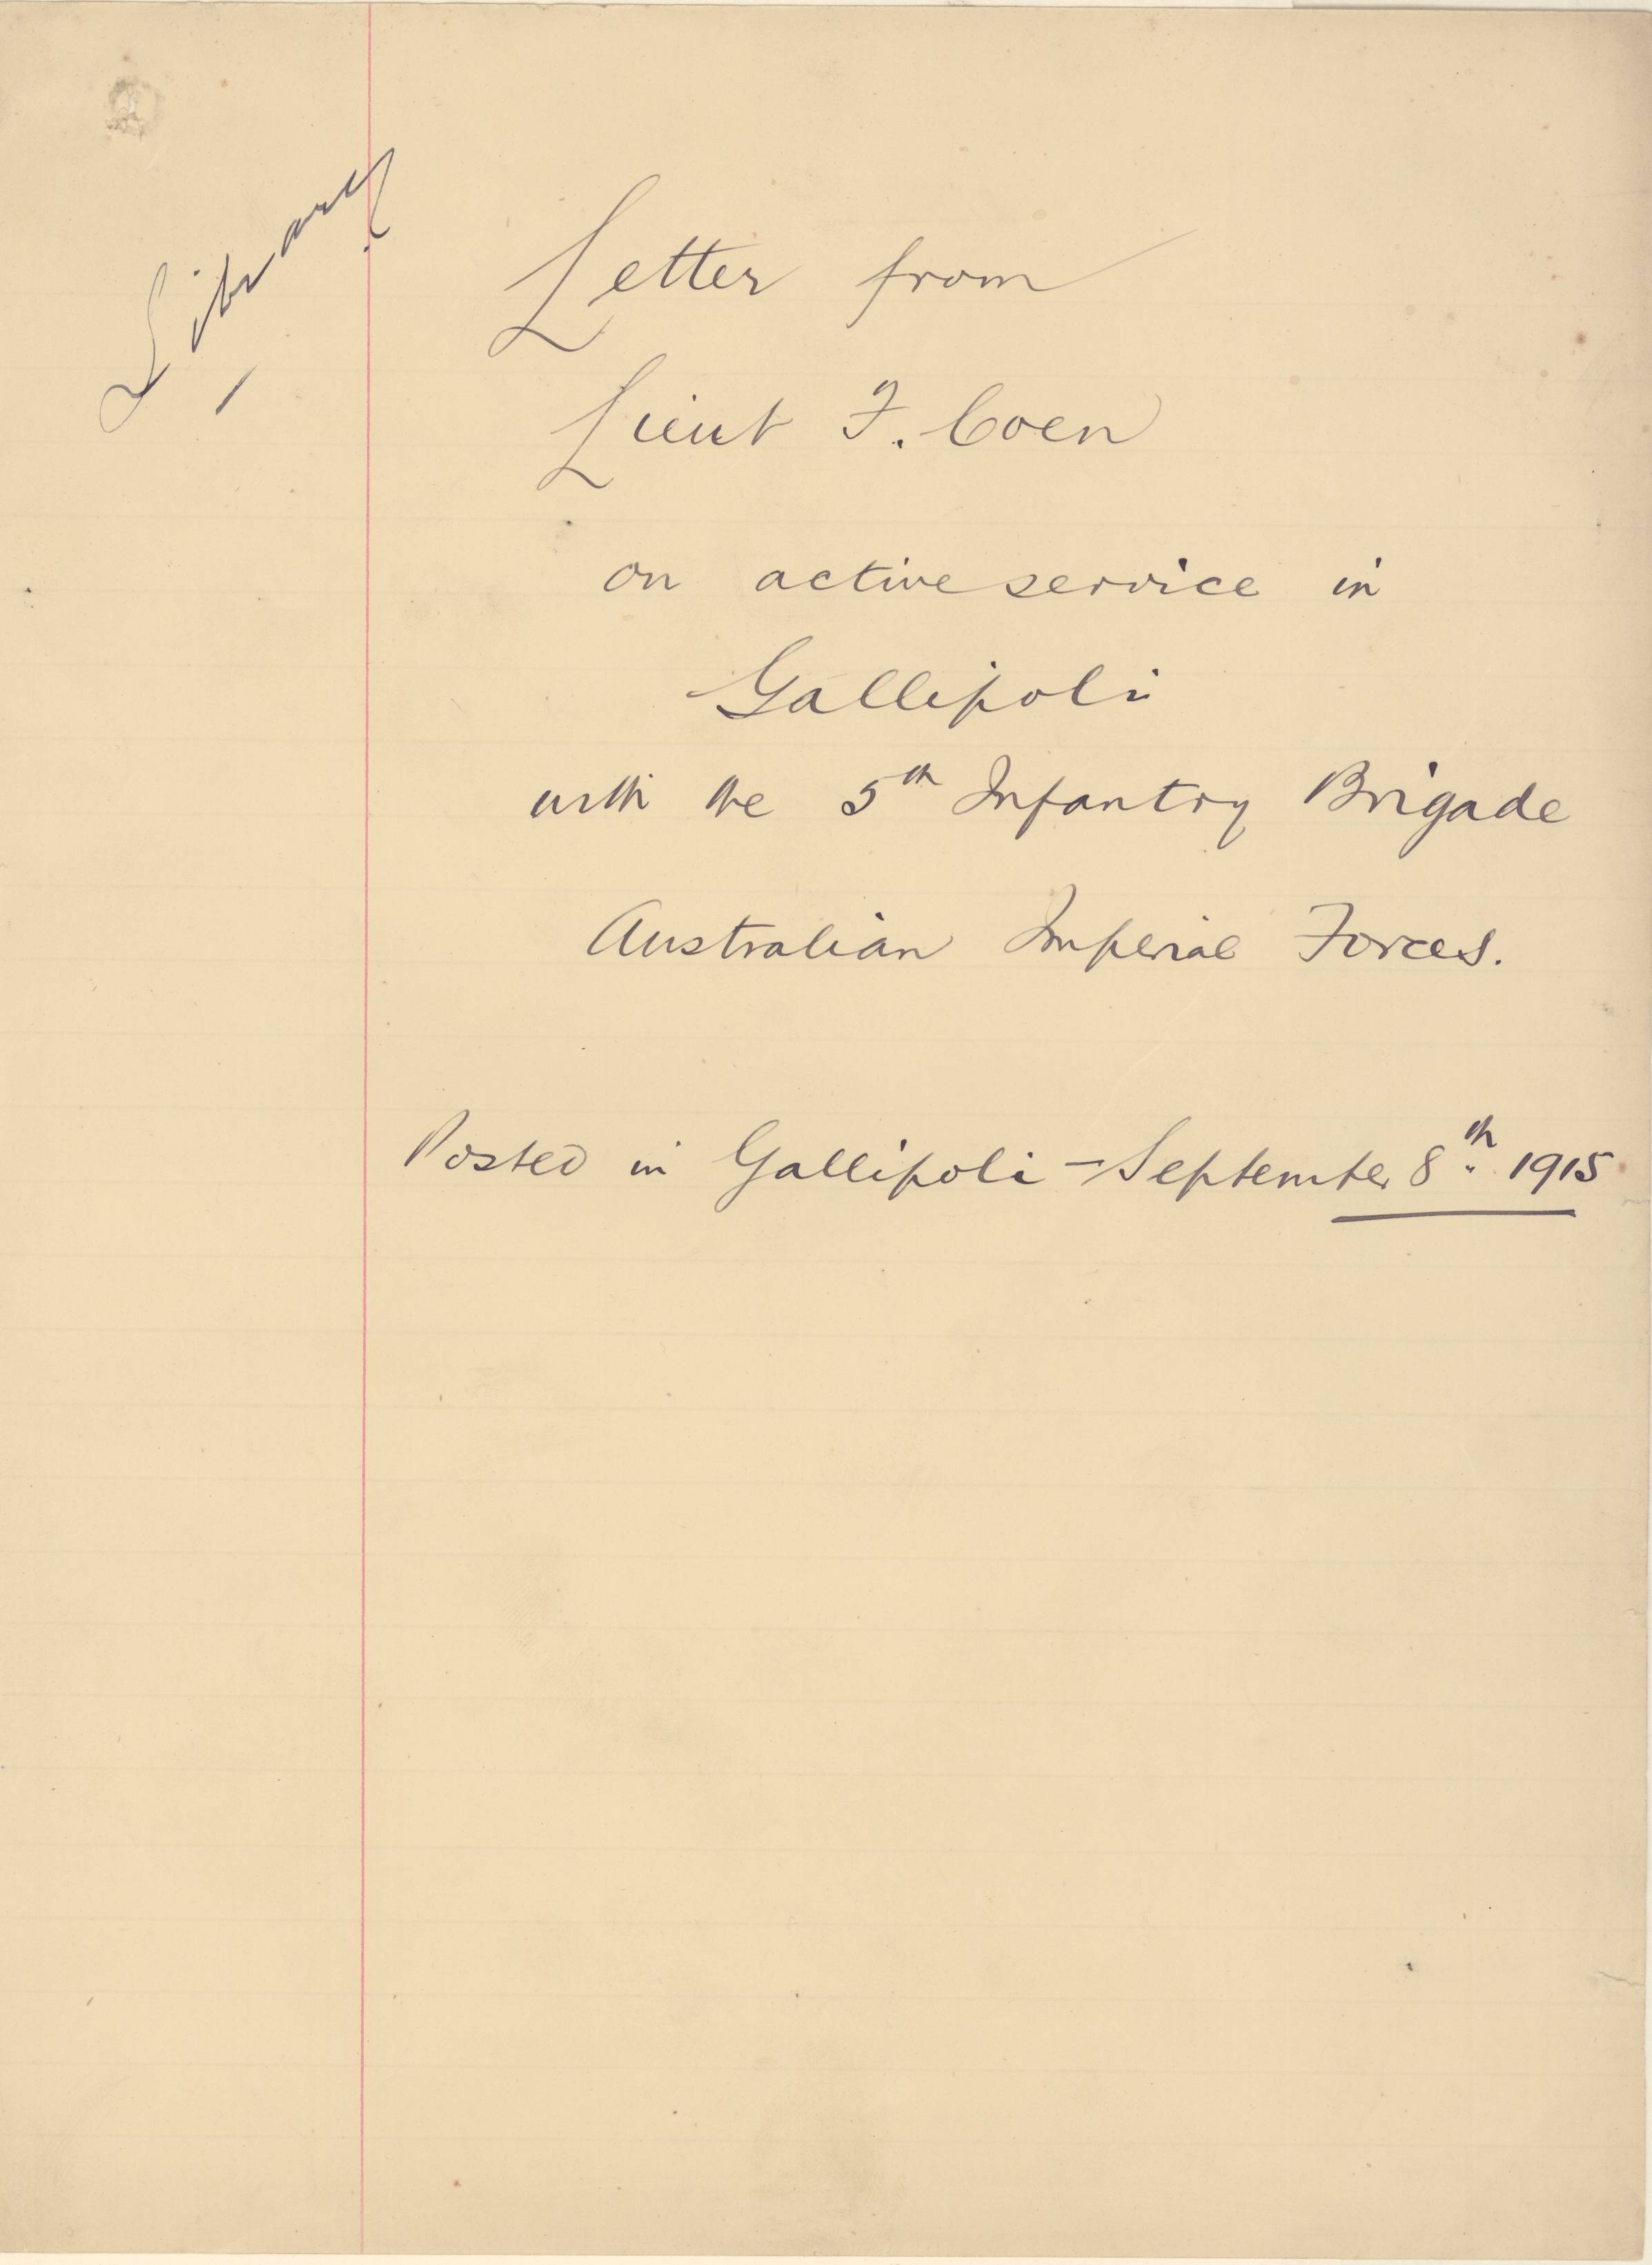 Library
Letter from
Lieut F. Coen
on active service in
Gallipoli
with the 5th Infantry Brigade
Australian Imperial Forces.
Posted in Gallipoli - September 8th 1915